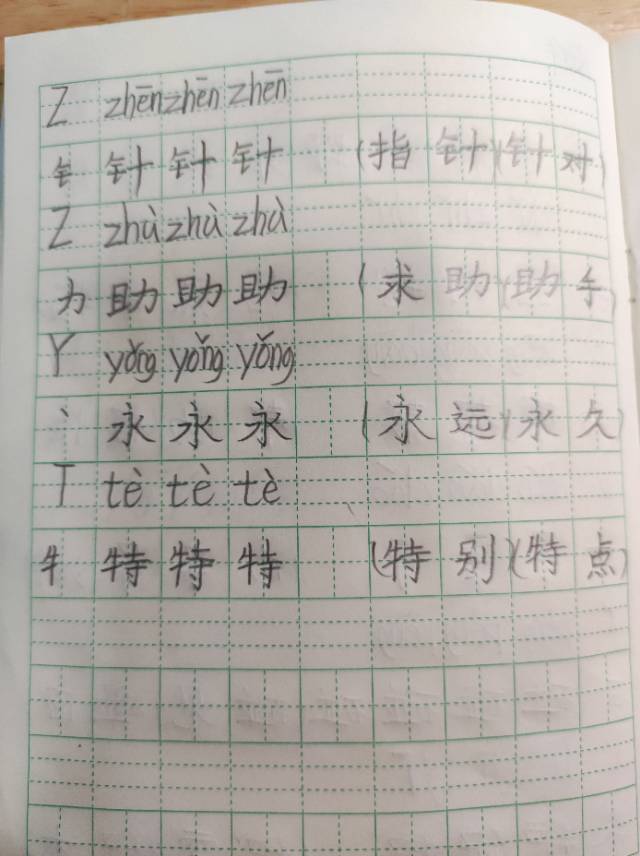 Z zhēn zhēn zhēn
钅 针 针 针 (指 针)(针 对)
Z zhù zhù zhù
力 助 助 助 (求 助)(助 手)
Y yǒng yǒng yǒng
丶 永 永 永 (永 远)(永 久)
T tè tè tè
牜 特 特 特 (特 别)(特 点)